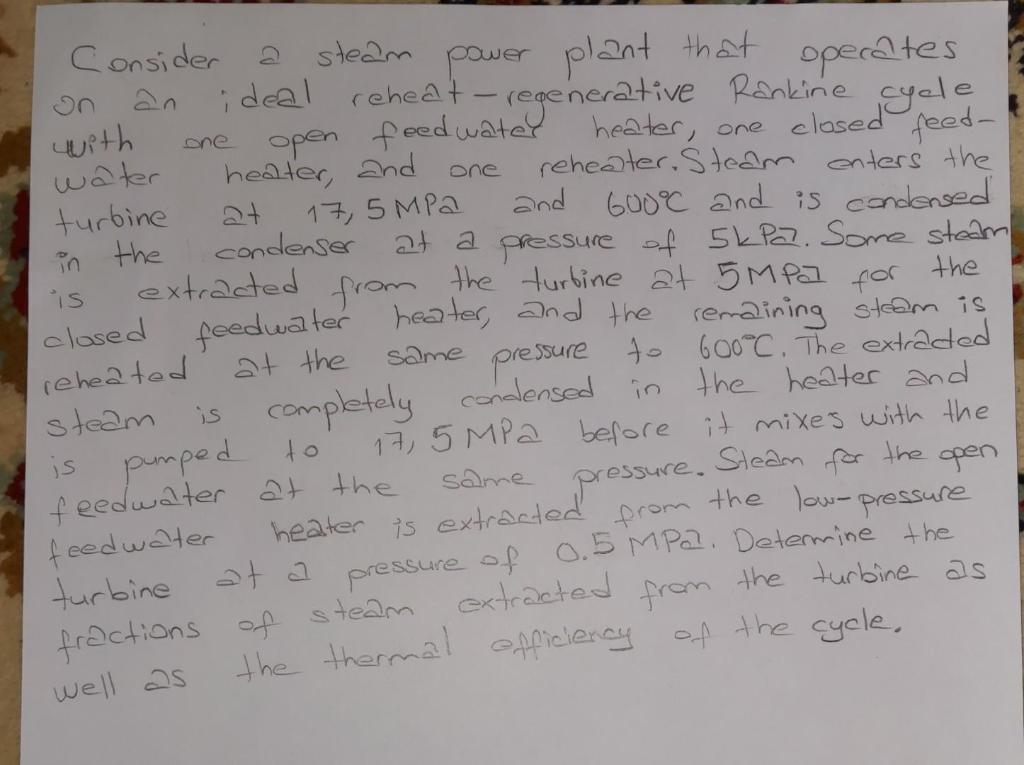 Consider a steam power plant that operates
on an ideal reheat-regenerative Rankine cycle
with one open feedwater heater, one closed feed-
water heater, and one reheater. Steam enters the
turbine at 17,5 MPa and 600°C and is condensed
in the condenser at a pressure of 5kPa. Some steam
is extracted from the turbine at 5 MPa for the
closed feedwater heater, and the remaining steam is
reheated at the same pressure to 600°C. The extracted
steam is completely condensed in the heater and
is pumped to 17,5 MPa before it mixes with the
feedwater at the same pressure. Steam for the open
feedwater heater is extracted from the low-pressure
turbine at a pressure of 0.5 MPa. Determine the
fractions of steam extracted from the turbine as
well as the thermal efficiency of the cycle.